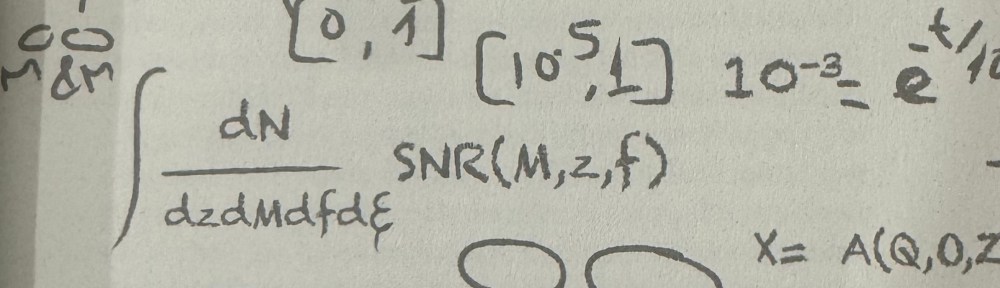 [0, 1]
[10^-5, 1] 10^-3 = e^-t/10
M &M
∫ dN
dzdMdfdξ SNR(M,z,f)
X= A(Q,O,Z